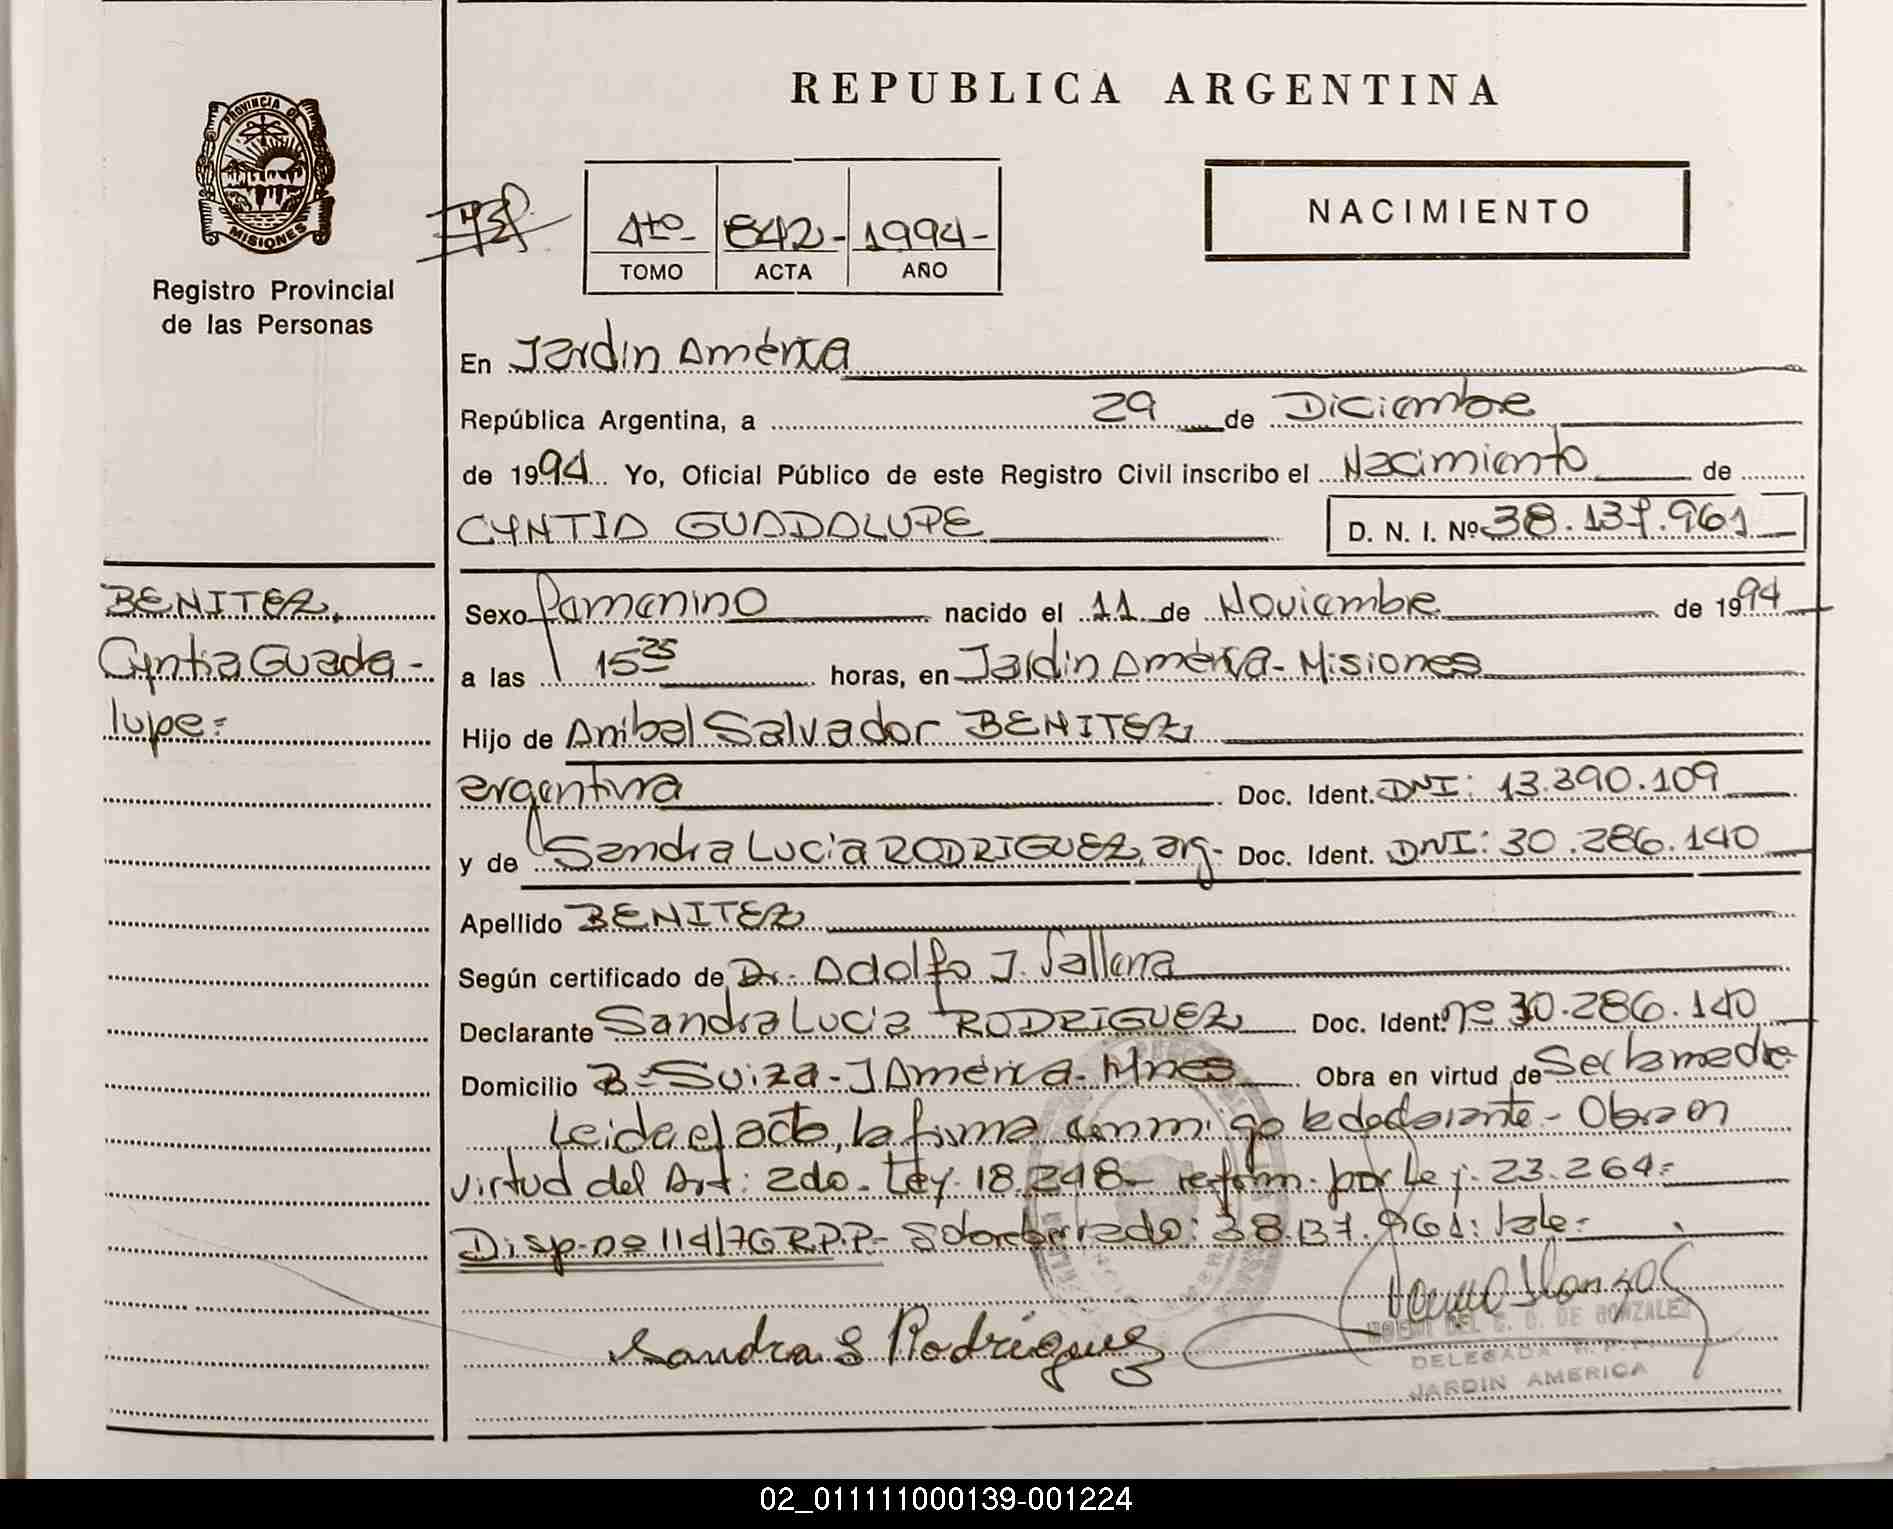 REPUBLICA ARGENTINA
PROVINCIA DE
MISIONES
Registro Provincial
de las Personas
4to- 842- 1994-
TOMO ACTA AÑO
NACIMIENTO
En Jardin América
República Argentina, a 29 de Diciembre
de 1994 Yo, Oficial Público de este Registro Civil inscribo el Nacimiento de
CYNTIA GUADALUPE D. N. I. Nº 38.137.961
BENITEZ,
Cyntia Guada-
lupe=
Sexo femenino nacido el 11 de Noviembre de 1994
a las 15 25 horas, en Jardin América- Misiones
Hijo de Anibal Salvador BENITEZ,
argentina Doc. Ident. DNI: 13.390.109
y de Sandra Lucia RODRIGUEZ, arg- Doc. Ident. DNI: 30.286.140
Apellido BENITEZ
Según certificado de Dr. Adolfo J.
Declarante Sandra Lucia RODRIGUEZ Doc. Ident. nº 30.286.140
Domicilio B= Suiza- J América- Mnes Obra en virtud de Ser la madre
Leida el acta, la firma conmigo la declarante- Obra en
virtud del Art: 2do- Ley- 18.248- reform. por Ley: 23.264=
Disp. nº 114/76 R.P.P.- Sobreborrado: 38.137.961: Vale=
Sandra L Rodriguez
DEL C. D. DE GONZALEZ
DELEGADA R.P.P.
JARDIN AMERICA
02_011111000139-001224